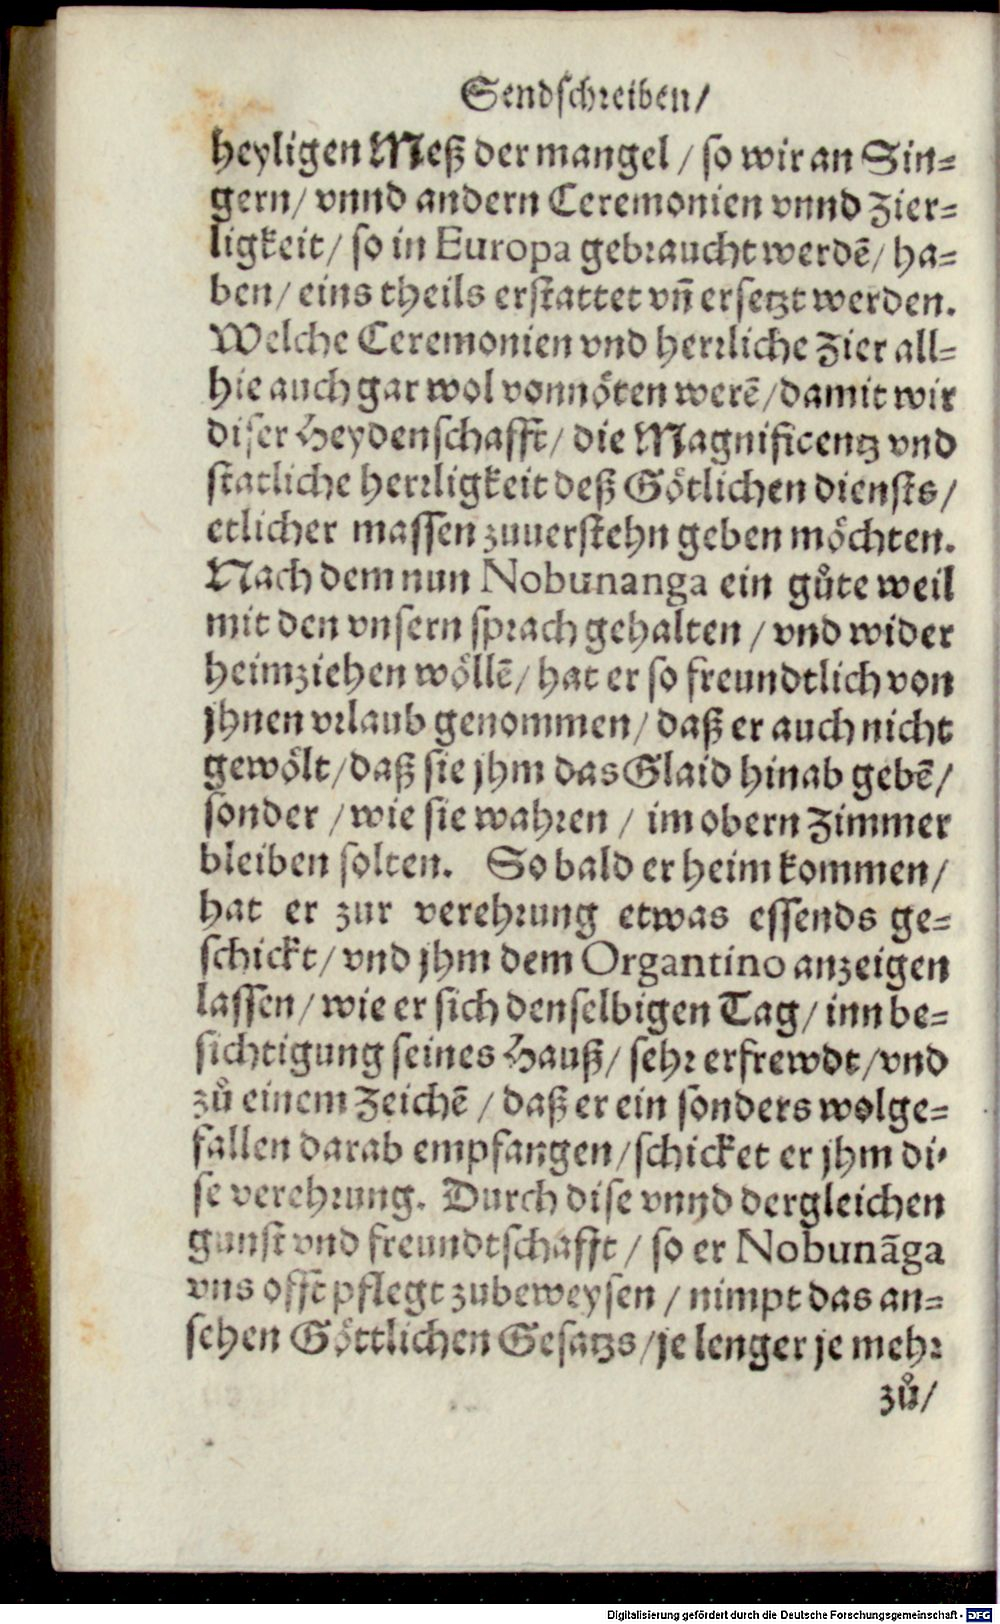 Sendschreiben/
heyligen Meß der mangel / so wir an Sin=
gern/ vnnd andern Ceremonien vnnd Zier=
ligkeit/ so in Europa gebraucht werdẽ/ ha=
ben/ eins theils erstattet vñ ersetzt werden.
Welche Ceremonien vnd herrliche Zier all=
hie auch gar wol vonnöten werẽ/damit wir
diser Heydenschafft/ die Magnificentz vnd
statliche herrligkeit deß Götlichen diensts/
etlicher massen zuuerstehn geben möchten.
Nach dem nun Nobunanga ein gůte weil
mit den vnsern sprach gehalten / vnd wider
heimziehen wöllẽ/ hat er so freundtlich von
jhnen vrlaub genommen/ daß er auch nicht
gewölt/daß sie jhm das Glaid hinab gebẽ/
sonder /wie sie wahren / im obern Zimmer
bleiben solten. So bald er heim kommen/
hat er zur verehrung etwas essends ge=
schickt/ vnd jhm dem Organtino anzeigen
lassen/ wie er sich denselbigen Tag/ inn be=
sichtigung seines Hauß/ sehr erfrewdt/vnd
zů einem Zeichẽ / daß er ein sonders wolge=
fallen darab empfangen/schicket er jhm di=
se verehrung. Durch dise vnnd dergleichen
gunst vnd freundtschafft / so er Nobunãga
vns offt pflegt zubeweysen / nimpt das an=
sehen Göttlichen Gesatzs/je lenger je mehr
zů/
Digitalisierung gefördert durch die Deutsche Forschungsgemeinschaft - DFG